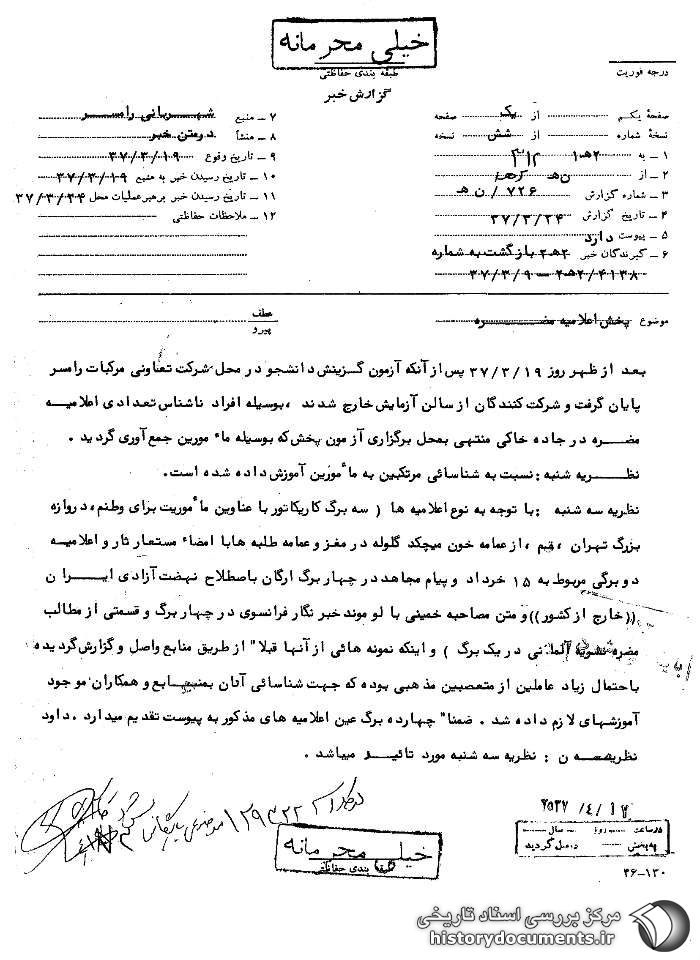 خیلی محرمانه
طبقه بندی حفاظتی
گزارش خبر
درجه فوریت
صفحهٔ یکم از یک صفحه
نسخهٔ شماره از شش نسخه
۱ ـ به ۲هـ۱ ۳۱۲
۲ ـ از ن هـ
۳ ـ شماره گزارش ۷۲۶ / ن هـ
۴ ـ تاریخ گزارش ۳۷/۳/۲۴
۵ ـ پیوست دارد
۶ ـ گیرندگان خبر ۲هـ۳ بازگشت به شماره
۲هـ۲/۴۱۳۸ ـ ۳۷/۳/۹
۷ ـ منبع شهربانی رامسر
۸ ـ منشأ درمتن خبر
۹ ـ تاریخ وقوع ۳۷/۳/۱۹
۱۰ ـ تاریخ رسیدن خبر به منبع ۳۷/۳/۱۹
۱۱ ـ تاریخ رسیدن خبر برهبرعملیات محل ۳۷/۳/۲۴
۱۲ ـ ملاحظات حفاظتی
موضوع پخش اعلامیه مضره
عطف
پیرو
بعد از ظهر روز ۳۷/۳/۱۹ پس از آنکه آزمون گزینش دانشجو در محل شرکت تعاونی مرکبات رامسر
پایان گرفت و شرکت کنندگان از سالن آزمایش خارج شدند ، بوسیله افراد ناشناس تعدادی اعلامیه
مضره در جاده خاکی منتهی بمحل برگزاری آزمون پخش که بوسیله مأمورین جمع آوری گردید .
نظریه شنبه : نسبت به شناسائی مرتکبین به مأمورین آموزش داده شده است.
نظریه سه شنبه : با توجه به نوع اعلامیه ها ( سه برگ کاریکاتور با عناوین مأموریت برای وطنم، دروازه
بزرگ تهران ، قم ، از عمامه خون میچکد گلوله در مغز و عمامه طلبه ها با امضاء مستعار ثار و اعلامیه
دو برگی مربوط به ۱۵ خرداد و پیام مجاهد در چهار برگ ارگان باصطلاح نهضت آزادی ایران
((خارج از کشور)) و متن مصاحبه خمینی با لوموند خبر نگار فرانسوی در چهار برگ و قسمتی از مطالب
مضره نشریه آلمانی در یک برگ ) و اینکه نمونه هائی از آنها قبلا" از طریق منابع واصل و گزارش گردیده
باحتمال زیاد عاملین از متعصبین مذهبی بوده که جهت شناسائی آنان بمنابع و همکاران موجود
آموزشهای لازم داده شد . ضمنا" چهارده برگ عین اعلامیه های مذکور به پیوست تقدیم میدارد . داود
نظریه ن : نظریه سه شنبه مورد تائید میباشد .
۱۲۹۳۲۲
۲۵۳۷/۴/۱۲
در ساعت روز سال
به بخش واصل گردید
خیلی محرمانه
طبقه بندی حفاظتی
۳۶-۱۳۰
مرکز بررسی اسناد تاریخی
historydocuments.ir